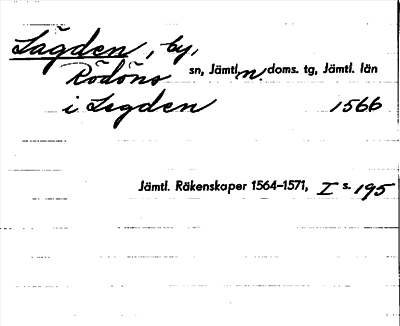 Lägden, by,
Rödöns sn, Jämtl. n. doms. tg, Jämtl. län
i Legden 1566
Jämtl. Räkenskaper 1564–1571, I s. 195